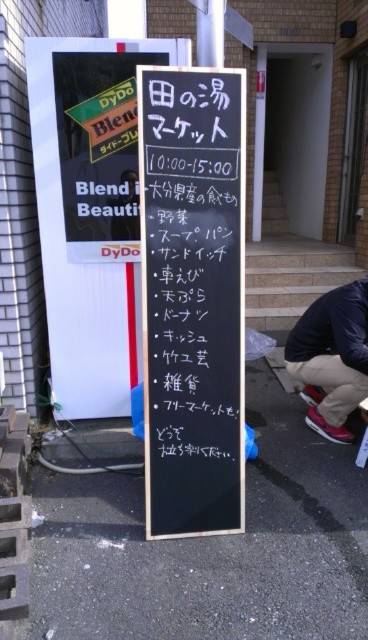 DyDo
Blend
ダイドーブレ
Blend i
Beauti
DyDo
田の湯
マーケット
10:00-15:00
大分県産の食べもの
・野菜
・スープ、パン
・サンドイッチ
・車えび
・天ぷら
・ドーナツ
・キッシュ
・竹工芸
・雑貨
・フリーマーケットも!
どうぞ
お立ち寄りください。